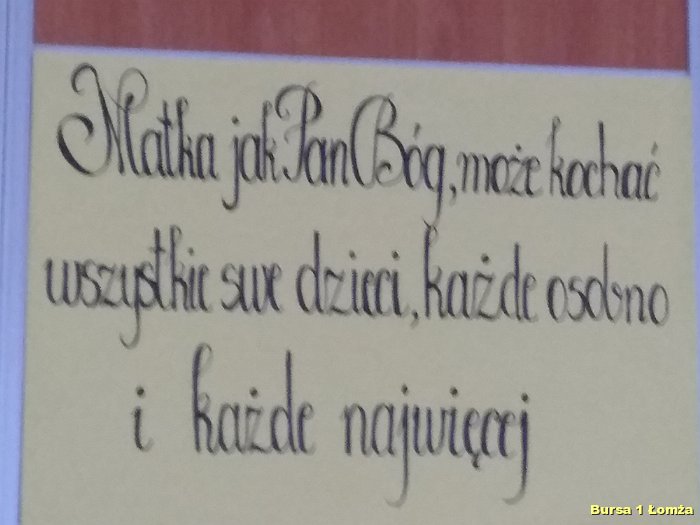 Matka jak Pan Bóg, może kochać
wszystkie swe dzieci, każde osobno
i każde najwięcej
Bursa 1 Łomża